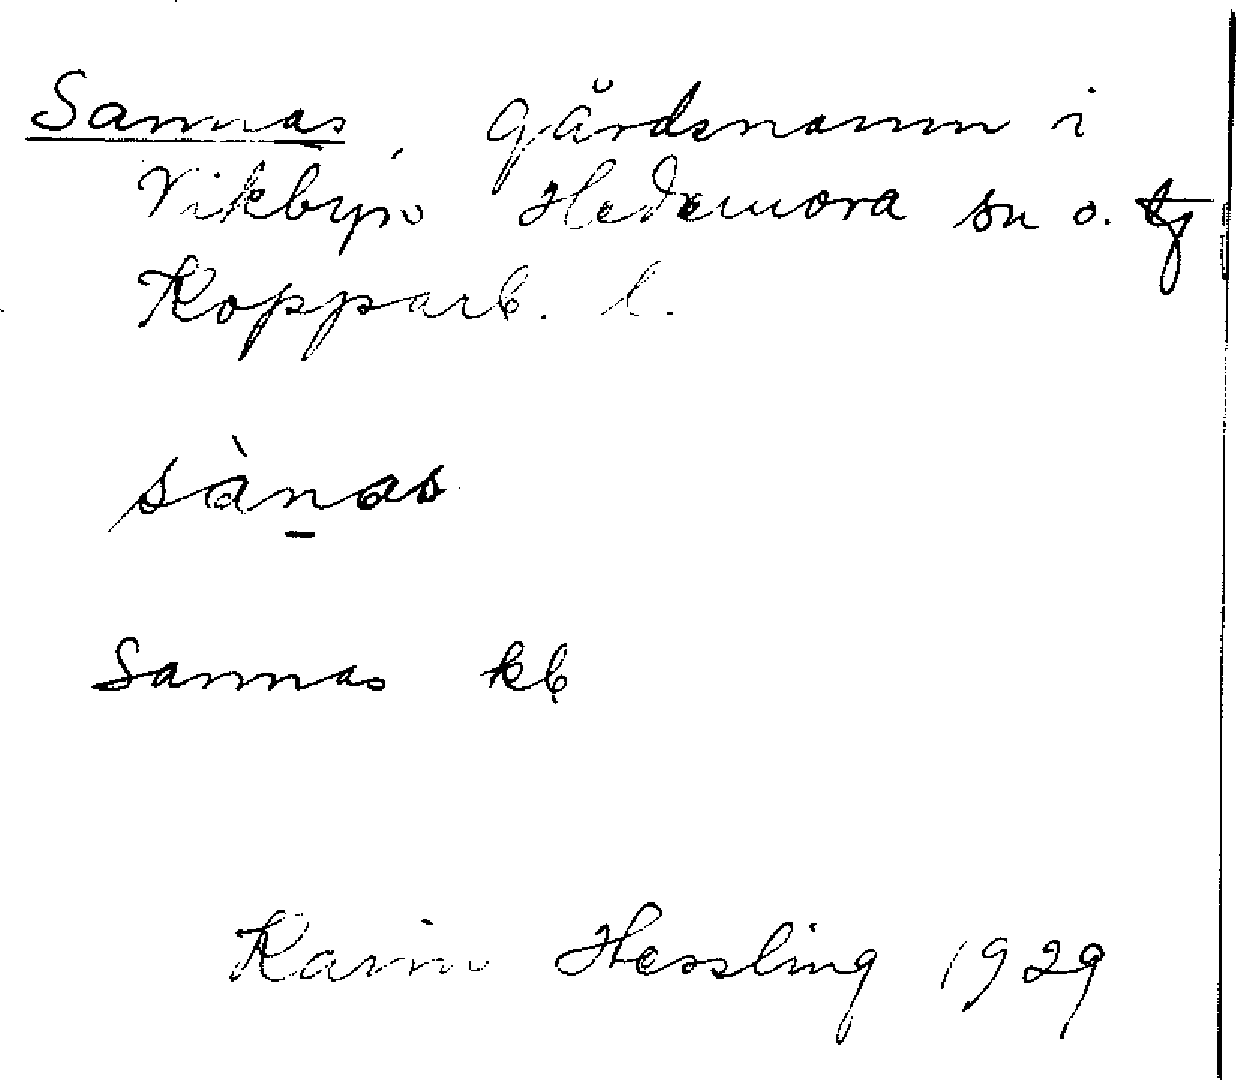 Sannas, gårdsnamn i
Vikbyn Hedemora sn o. tg
Kopparb. l.
sànas
Sannas kb
Karin Hessling 1929